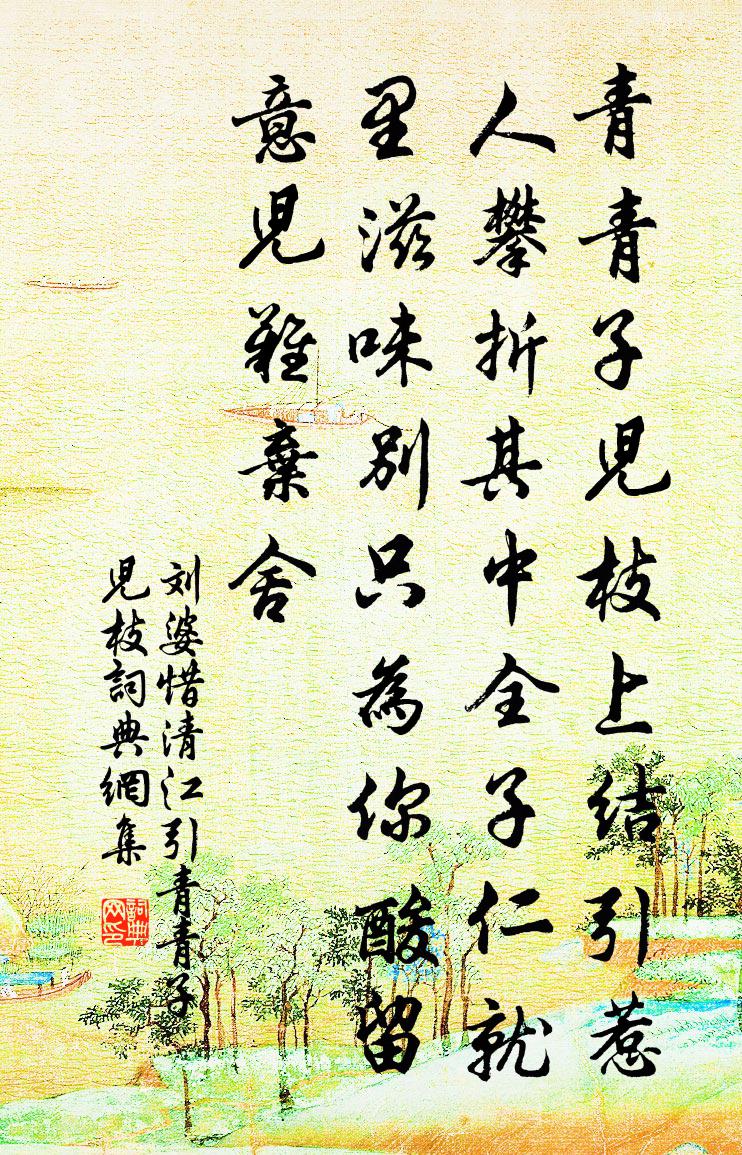 青青子児枝上結引惹
人攀折其中全子仁就
里滋味別只為你酸留
意児難棄舍
刘婆惜清江引青青子
児枝詞典網集
詞典网印